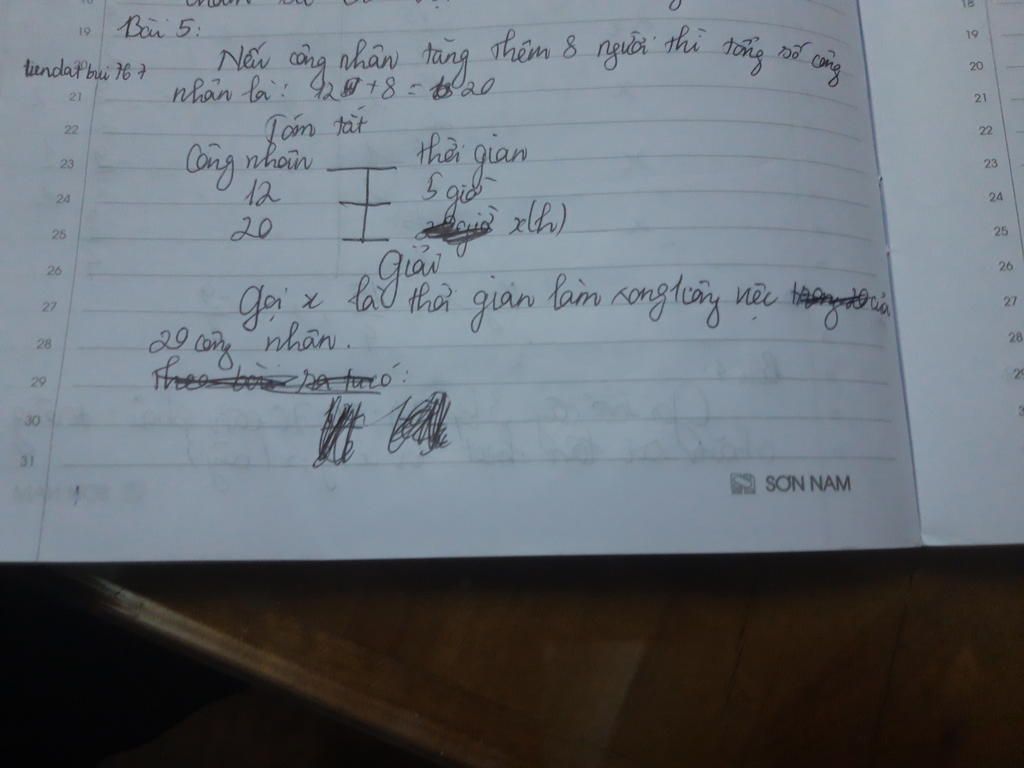 Bài 5:
Nếu công nhân tăng thêm 8 người thì tổng số công
tiendatbui767
nhân là: 12 + 8 = 20
Tóm tắt
Công nhân thời gian
12 5 giờ
20 x(h)
Giải
Gọi x là thời gian làm xong công việc của
20 công nhân.
SƠN NAM
18
19
20
21
22
23
24
25
26
27
28
29
30
31
18
19
20
21
22
23
24
25
26
27
28
29